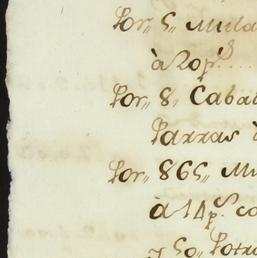 Por,, 5,, Mula
à 20 p.s
Por,, 8,, Cabal
Parras à
Por,, 865,, Mu
à 14 p.s co
y 50,, Potra